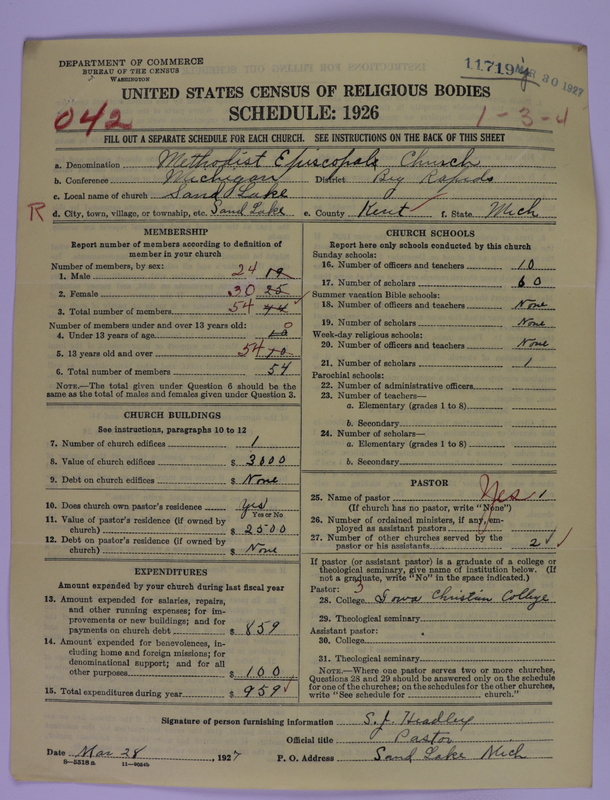 DEPARTMENT OF COMMERCE
BUREAU OF THE CENSUS
WASHINGTON
11719
MAR 30 1927
UNITED STATES CENSUS OF RELIGIOUS BODIES
SCHEDULE: 1926
042
1-3-4
FILL OUT A SEPARATE SCHEDULE FOR EACH CHURCH. SEE INSTRUCTIONS ON THE BACK OF THIS SHEET
a. Denomination Methodist Episcopale Church
b. Conference Michigan District Big Rapids
c. Local name of church Sand Lake
R
d. City, town, village, or township, etc. Sand Lake e. County Kent f. State Mich
MEMBERSHIP
Report number of members according to definition of member in your church
Number of members, by sex:
1. Male 24 19
2. Female 30 25
3. Total number of members 54 44
Number of members under and over 13 years old:
4. Under 13 years of age 0 10
5. 13 years old and over 54 10
6. Total number of members 54
NOTE.—The total given under Question 6 should be the same as the total of males and females given under Question 3.
CHURCH BUILDINGS
See instructions, paragraphs 10 to 12
7. Number of church edifices 1
8. Value of church edifices $ 3000
9. Debt on church edifices $ None
10. Does church own pastor's residence yes
Yes or No
11. Value of pastor's residence (if owned by church) $ 2500
12. Debt on pastor's residence (if owned by church) $ None
EXPENDITURES
Amount expended by your church during last fiscal year
13. Amount expended for salaries, repairs, and other running expenses; for improvements or new buildings; and for payments on church debt $ 859
14. Amount expended for benevolences, including home and foreign missions; for denominational support; and for all other purposes $ 100
15. Total expenditures during year $ 959
CHURCH SCHOOLS
Report here only schools conducted by this church
Sunday schools:
16. Number of officers and teachers 10
17. Number of scholars 60
Summer vacation Bible schools:
18. Number of officers and teachers None
19. Number of scholars None
Week-day religious schools:
20. Number of officers and teachers None
21. Number of scholars
Parochial schools:
22. Number of administrative officers
23. Number of teachers—
a. Elementary (grades 1 to 8)
b. Secondary
24. Number of scholars—
a. Elementary (grades 1 to 8)
b. Secondary
PASTOR
25. Name of pastor Yes 1
(If church has no pastor, write "None")
26. Number of ordained ministers, if any, employed as assistant pastors
27. Number of other churches served by the pastor or his assistants 2
If pastor (or assistant pastor) is a graduate of a college or theological seminary, give name of institution below. (If not a graduate, write "No" in the space indicated.)
Pastor: 3
28. College Iowa Christian College
29. Theological seminary
Assistant pastor:
30. College
31. Theological seminary
NOTE.—Where one pastor serves two or more churches, Questions 28 and 29 should be answered only on the schedule for one of the churches; on the schedules for the other churches, write "See schedule for church."
Signature of person furnishing information S. J. Headley
Official title Pastor
Date Mar 28, 1927 P. O. Address Sand Lake Mich
8-5518a